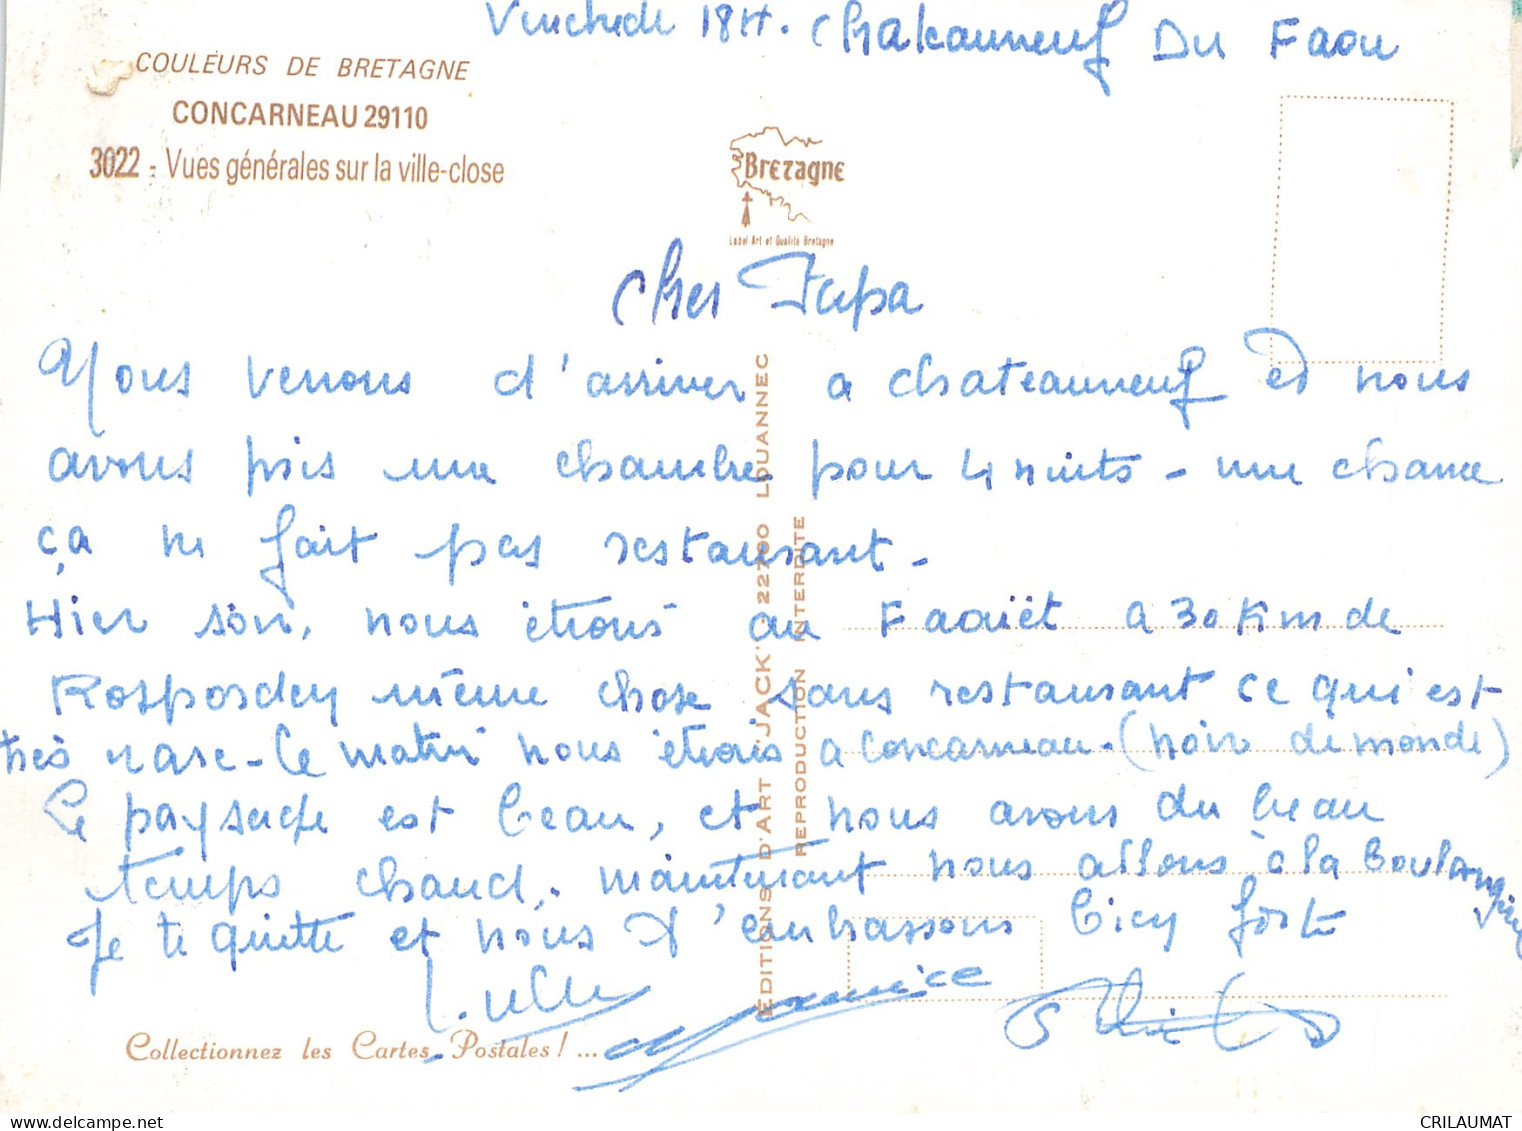 Vendredi 18H. Chateauneuf Du Faou
COULEURS DE BRETAGNE
CONCARNEAU 29110
3022 - Vues générales sur la ville-close
Bretagne
Label Art et Qualité Bretagne
Cher Papa
Nous venons d'arriver a chateauneuf et nous
avons pris une chambre pour 4 nuits - une chance
ça ne fait pas restaurant -
Hier soir, nous étions au Faouët a 30 Km de
Rosporden même chose sans restaurant ce qui est
très rare - Le matin nous étions a Concarneau - (noir de monde)
Le paysage est beau, et nous avons du beau
temps chaud, maintenant nous allons à la Boulangerie
Je te quitte et nous t'embrassons bien fort
ÉDITIONS D'ART JACK - 22700 LOUANNEC
REPRODUCTION INTERDITE
Collectionnez les Cartes Postales ! ...
CRILAUMAT